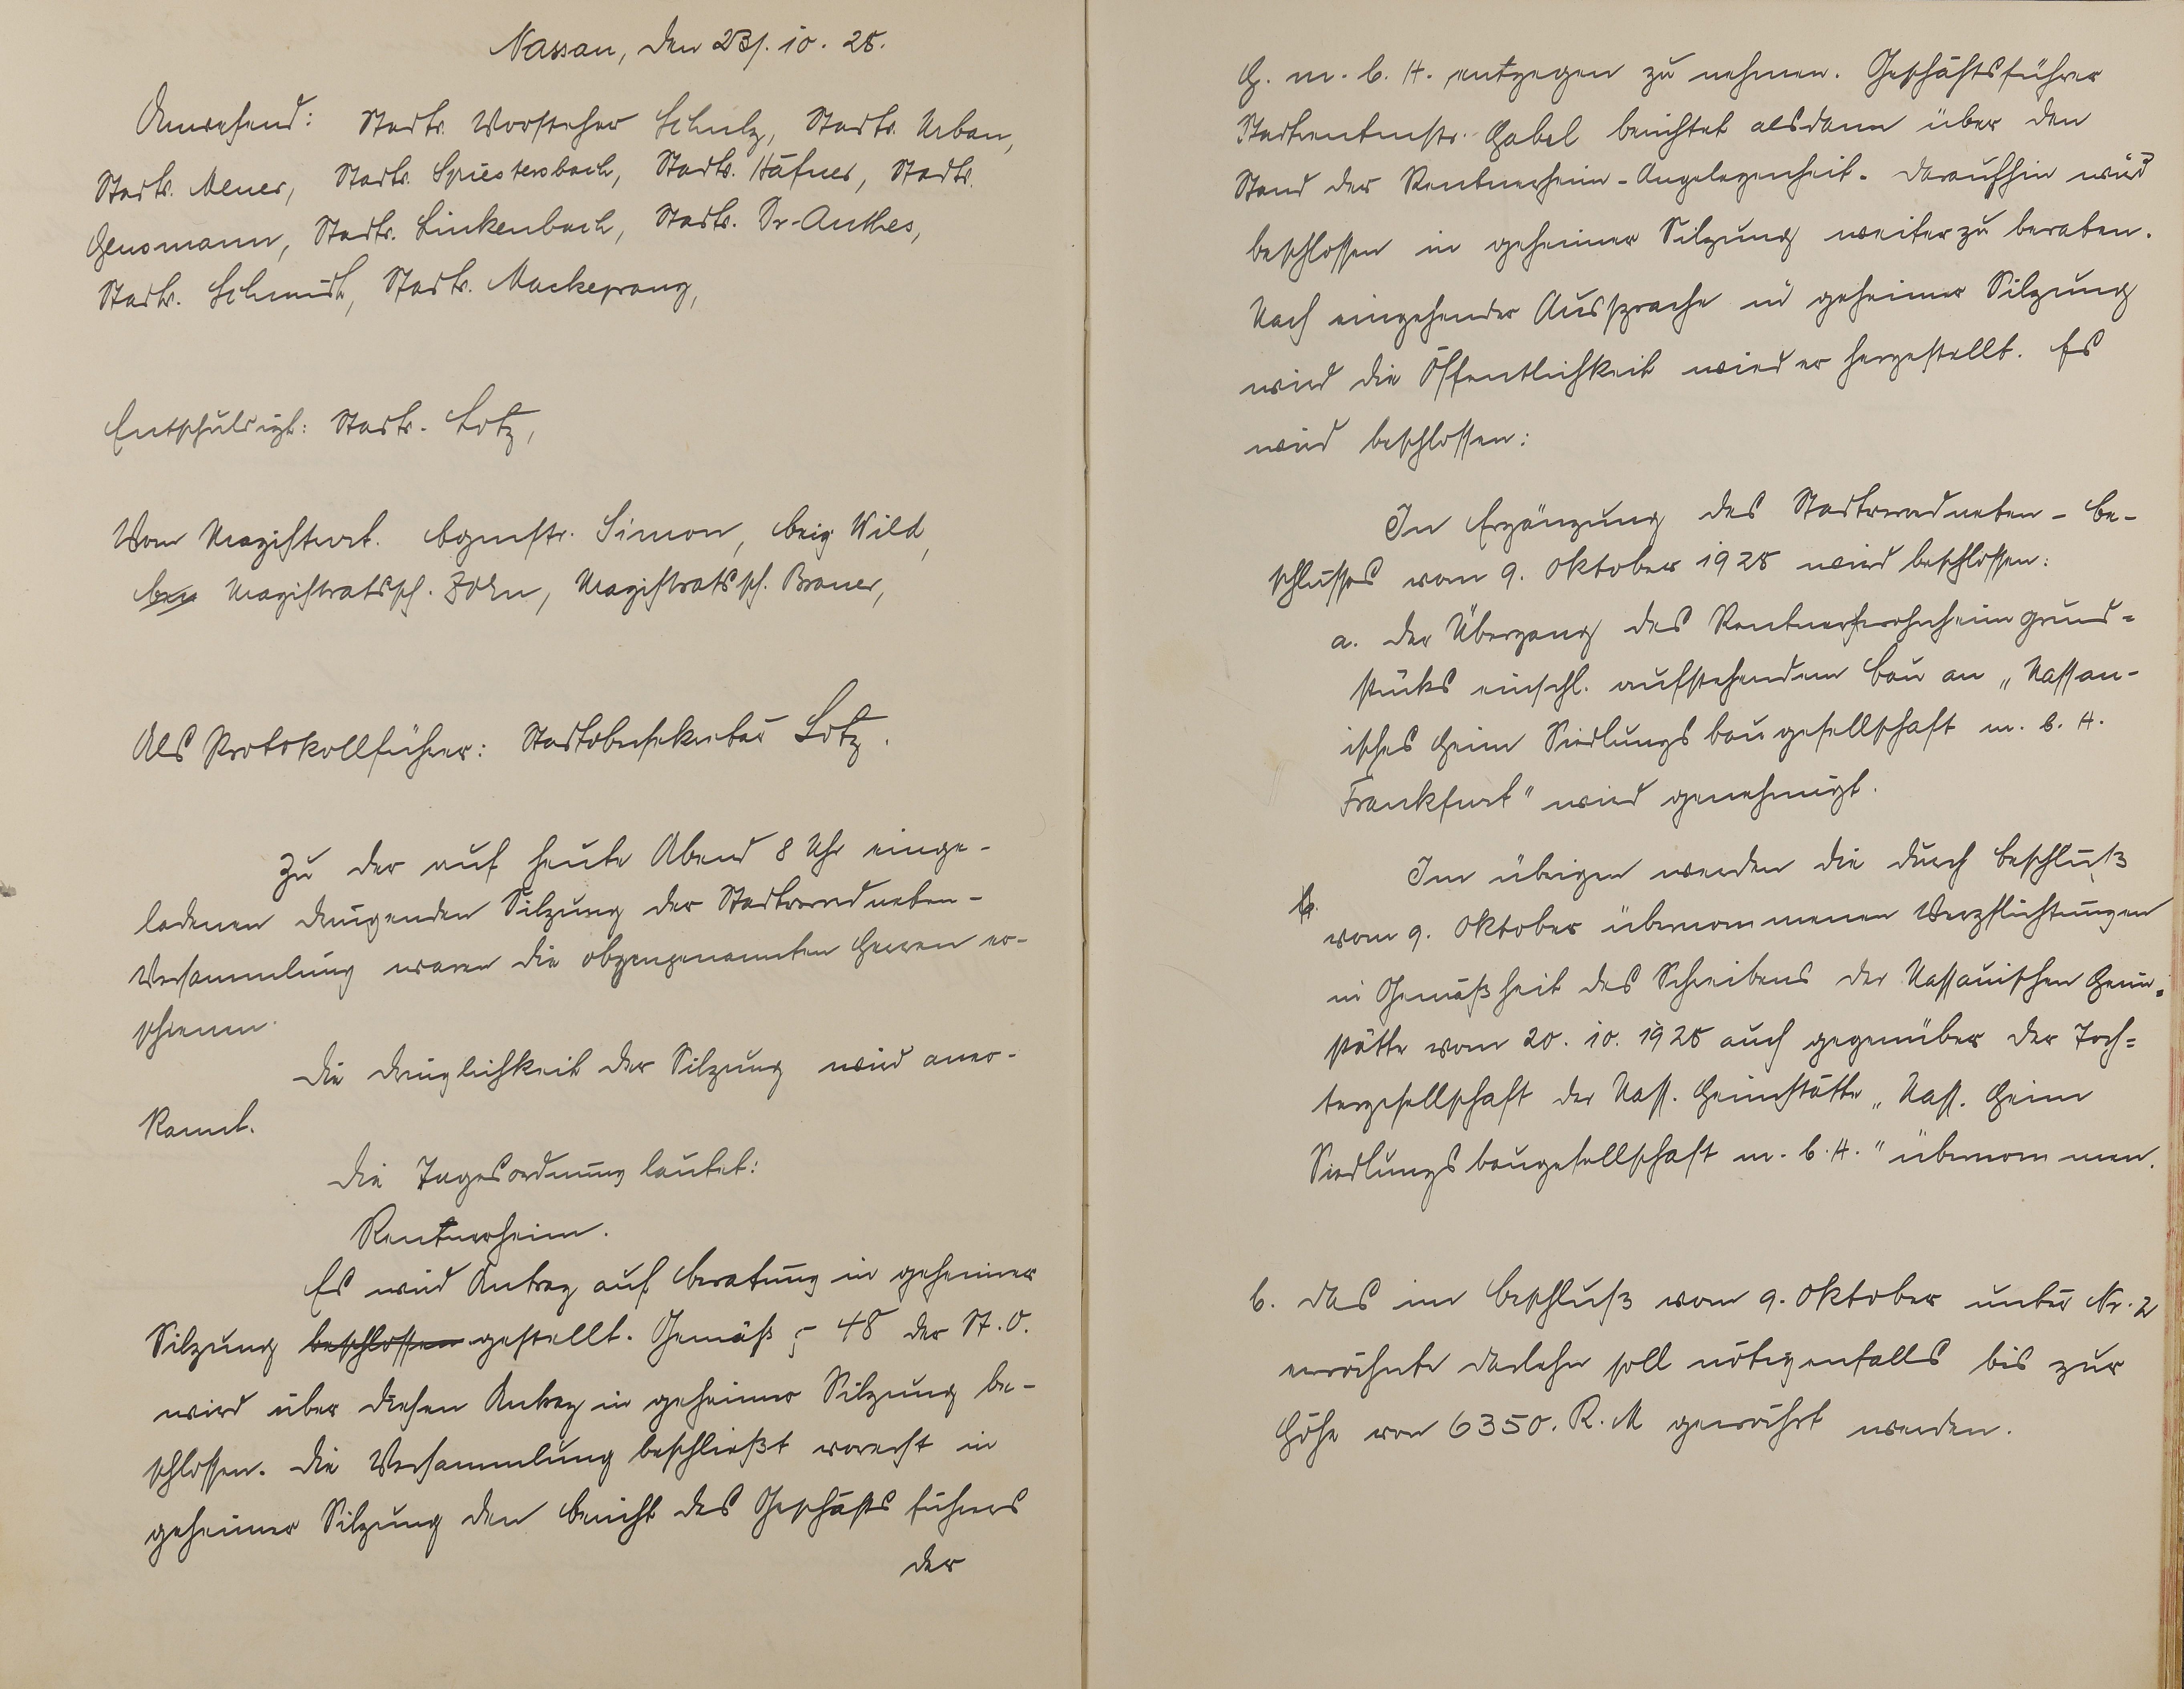 Nassau, den 23. 10. 28.
Anwesend: Stadtv. Vorsteher Schulz, Stadtv. Urban,
Stadtv. Meuer, Stadtv. Spriestersbach, Stadtv. Häfner, Stadtv.
Gensmann, Stadtv. Linkenbach, Stadtv. Dr. Anthes,
Stadtv. Schmidt, Stadtv. Mackeprang,
Entschuldigt: Stadtv. Lotz,
Vom Magistrat. Bgmstr. Simon, Beig. Wild,
Magistratssch. Zorn, Magistratssch. Brauer,
Als Protokollführer: Stadtobersekretär Lotz.
Zu der auf heute Abend 8 Uhr einge-
ladenen dringenden Sitzung der Stadtverordneten-
versammlung waren die obengenannten Herren er-
schienen.
Die Dringlichkeit der Sitzung wird aner-
kannt.
Die Tagesordnung lautet:
Rentnerheim.
Es wird Antrag auf Beratung in geheimer
Sitzung beschlossen gestellt. Gemäß § 48 der St. O.
wird über diesen Antrag in geheimer Sitzung be-
schlossen. Die Versammlung beschließt vorerst in
geheimer Sitzung den Bericht des Geschäftsführers
der
G. m. b. H. entgegen zu nehmen. Geschäftsführer
Stadtrentmstr. Gabel berichtet alsdann über den
Stand der Rentnerheim-Angelegenheit. Daraufhin wird
beschlossen in geheimer Sitzung weiter zu beraten.
Nach eingehender Aussprache in geheimer Sitzung
wird die Öffentlichkeit wieder hergestellt. Es
wird beschlossen:
In Ergänzung des Stadtverordneten-Be-
schlusses vom 9. Oktober 1928 wird beschlossen:
a. Der Übergang des Rentnerwohnheimgrund=
stücks einschl. aufstehendem Bau an „Nassau-
isches Heim Siedlungsbaugesellschaft m. b. H.
Frankfurt" wird genehmigt.
Im übrigen werden die durch Beschluß
b.
vom 9. Oktober übernommenen Verpflichtungen
in Gemäßheit des Schreibens der Nassauischen Heim=
stätte vom 20. 10. 1928 auch gegenüber der Toch=
tergesellschaft der Nass. Heimstätte „Nass. Heim
Siedlungsbaugesellschaft m. b. H." übernommen.
b. Das im Beschluß vom 9. Oktober unter Nr. 2
erwähnte Darlehn soll nötigenfalls bis zur
Höhe von 6350. R. M gewährt werden.